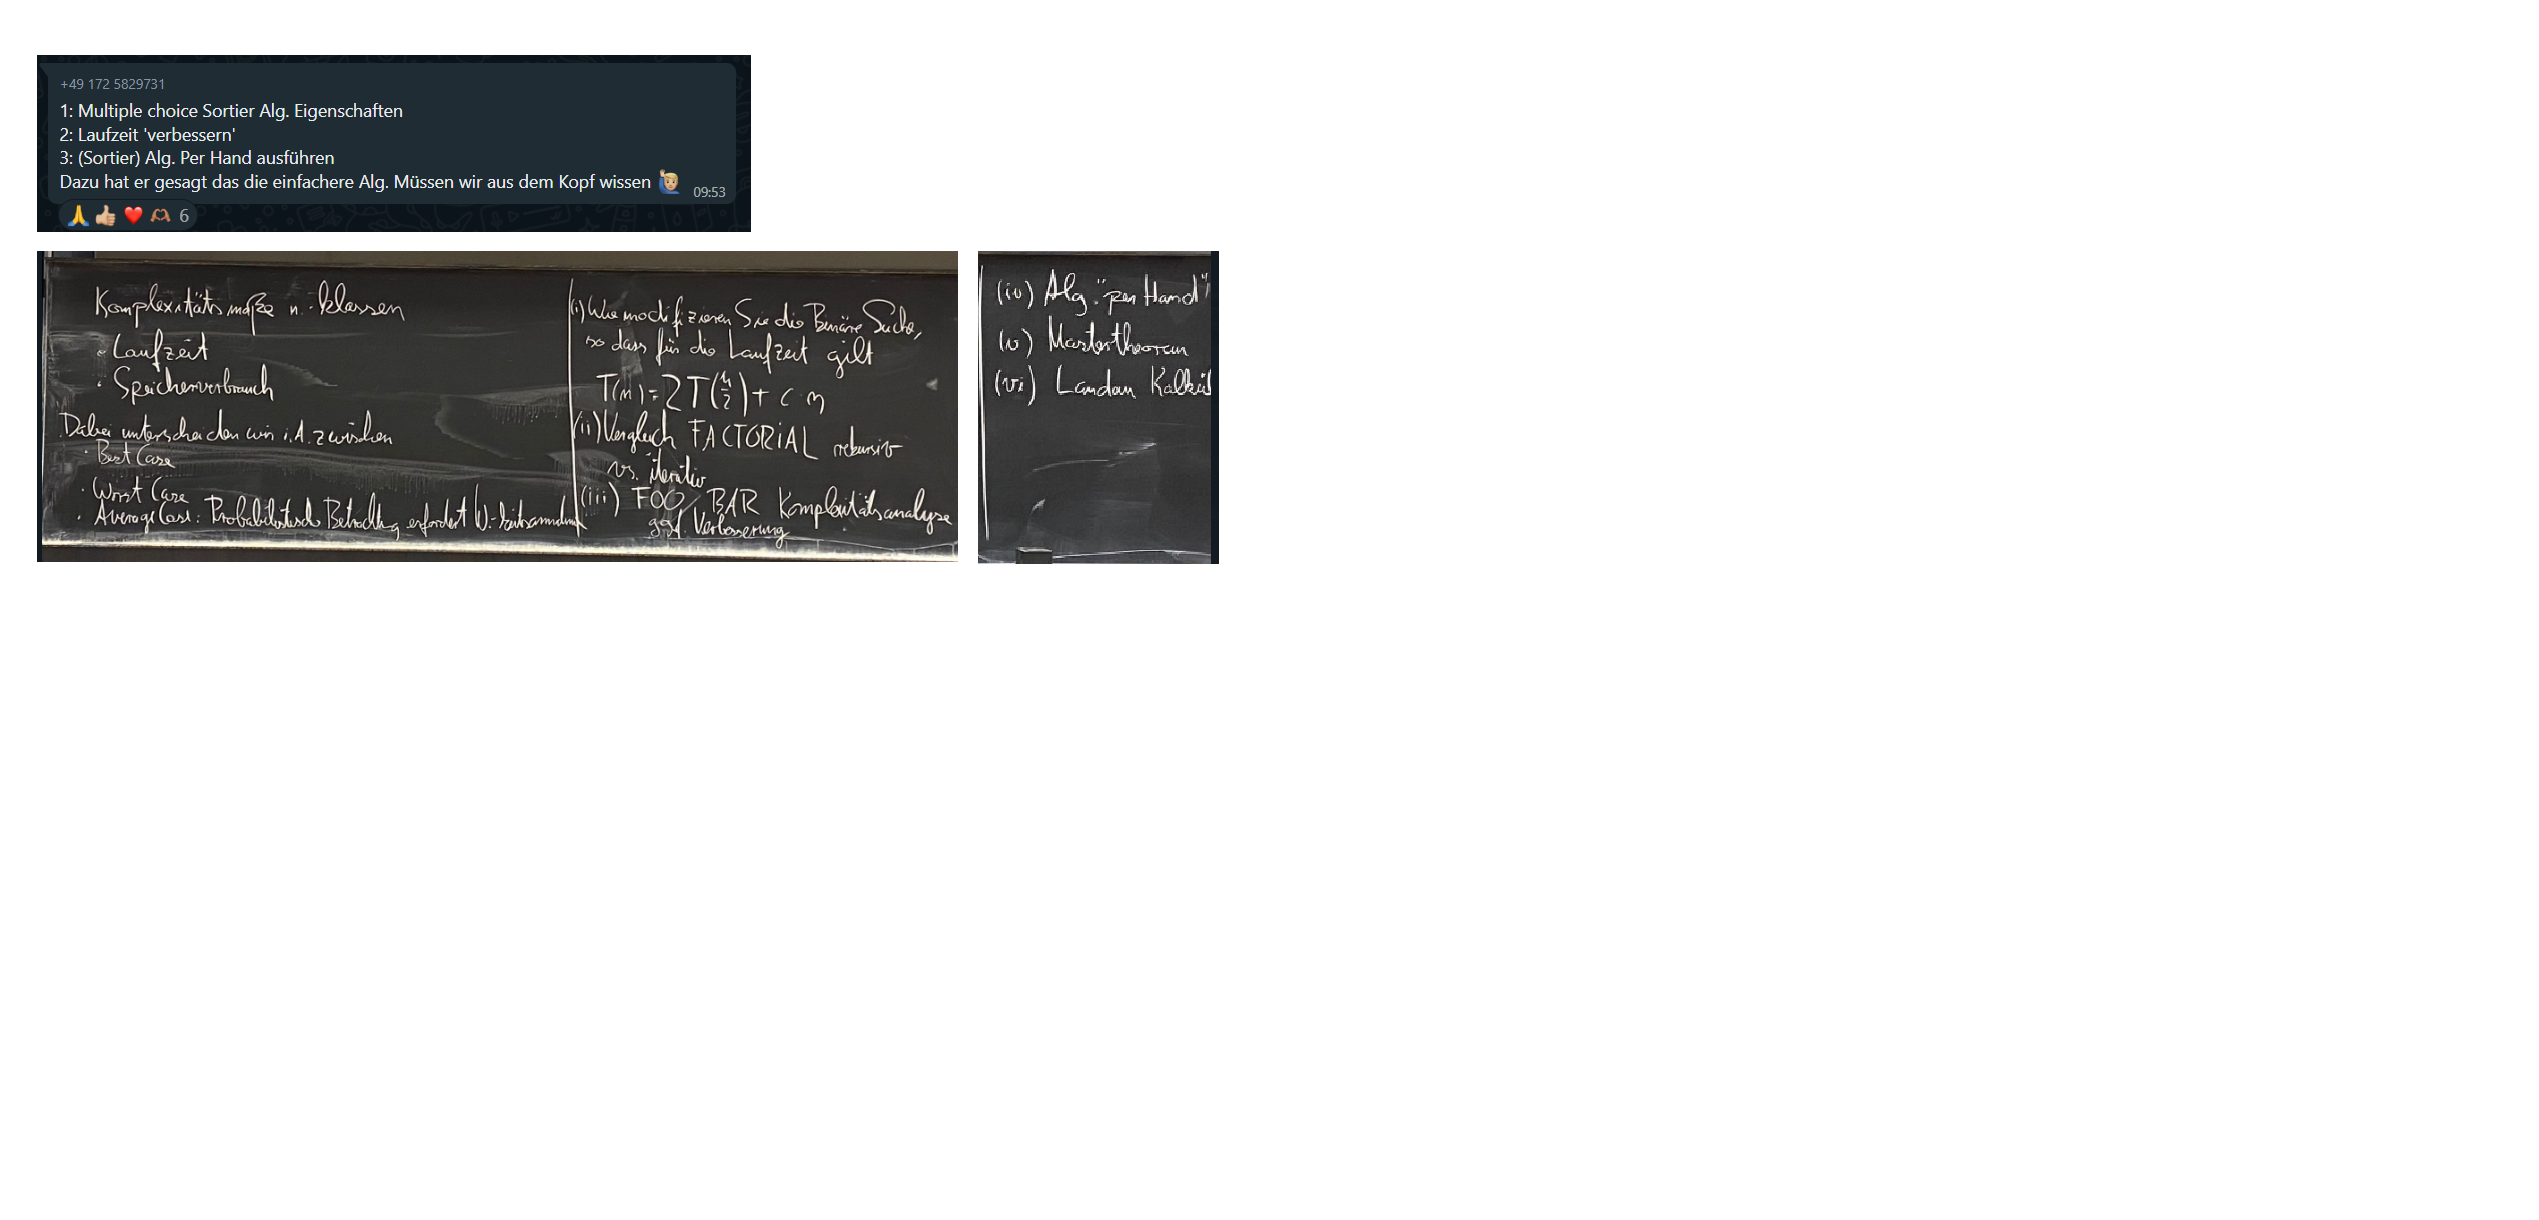 +49 172 5829731
1: Multiple choice Sortier Alg. Eigenschaften
2: Laufzeit 'verbessern'
3: (Sortier) Alg. Per Hand ausführen
Dazu hat er gesagt das die einfachere Alg. Müssen wir aus dem Kopf wissen 🙋🏼‍♂️
09:53
🙏👍🏼❤️🫶🏽 6
Komplexitätsmaße u. -klassen
• Laufzeit
• Speicherverbrauch
Dabei unterscheiden wir i. A. zwischen
• Best Case
• Worst Case
• Average Case: Probabilistische erfordert
(i) Wie modifizieren Sie die Binäre Suche,
so dass für die Laufzeit gilt
T(n) = 2T(n/2) + c n
(ii) Vergleich FACTORIAL rekursiv
vs. iterativ
(iii) FOO, BAR Komplexitätsanalyse
ggf. Verbesserung
(iv) Alg. "per Hand"
(v) Mastertheorem
(vi) Landau Kalkül